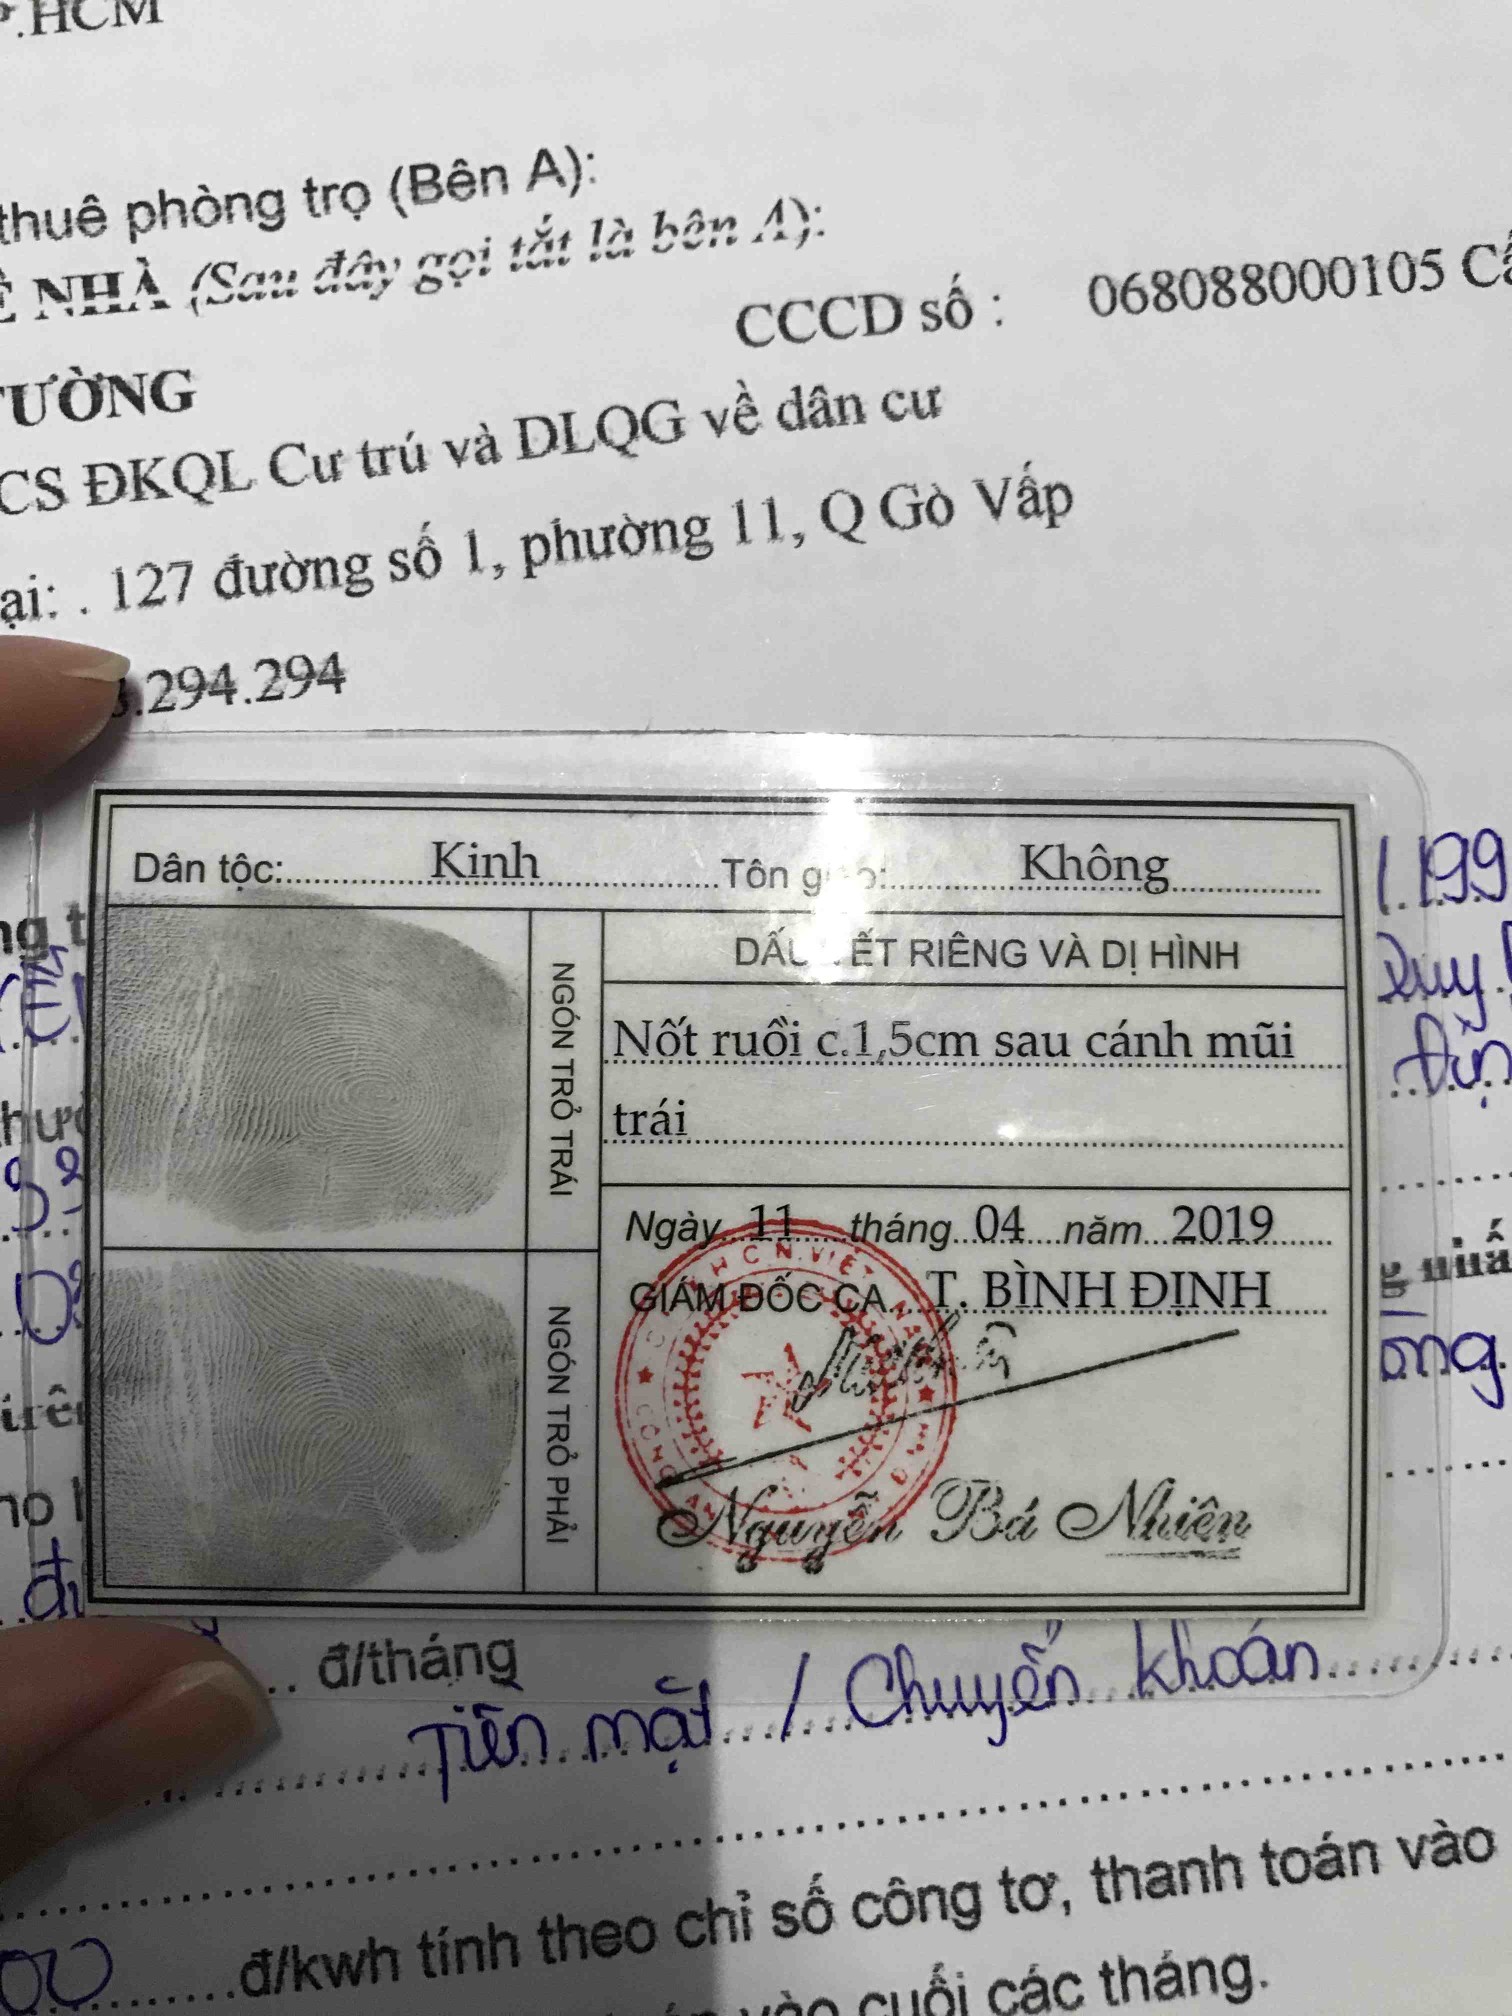 P.HCM
thuê phòng trọ (Bên A):
NHÀ (Sau đây gọi tắt là bên A):
CCCD số : 068088000105
TƯỜNG
CS ĐKQL Cư trú và DLQG về dân cư
ại: . 127 đường số 1, phường 11, Q Gò Vấp
.294.294
Dân tộc: Kinh Tôn giáo: Không
DẤU VẾT RIÊNG VÀ DỊ HÌNH
NGÓN TRỎ TRÁI
Nốt ruồi c.1,5cm sau cánh mũi
trái
Ngày 11 tháng 04 năm 2019
GIÁM ĐỐC CA T. BÌNH ĐỊNH
NGÓN TRỎ PHẢI
Nguyễn Bá Nhiên
.199
Duy
Địn
ong
đ/tháng
Tiền mặt / Chuyển khoản
00 đ/kwh tính theo chỉ số công tơ, thanh toán vào
vào cuối các tháng.